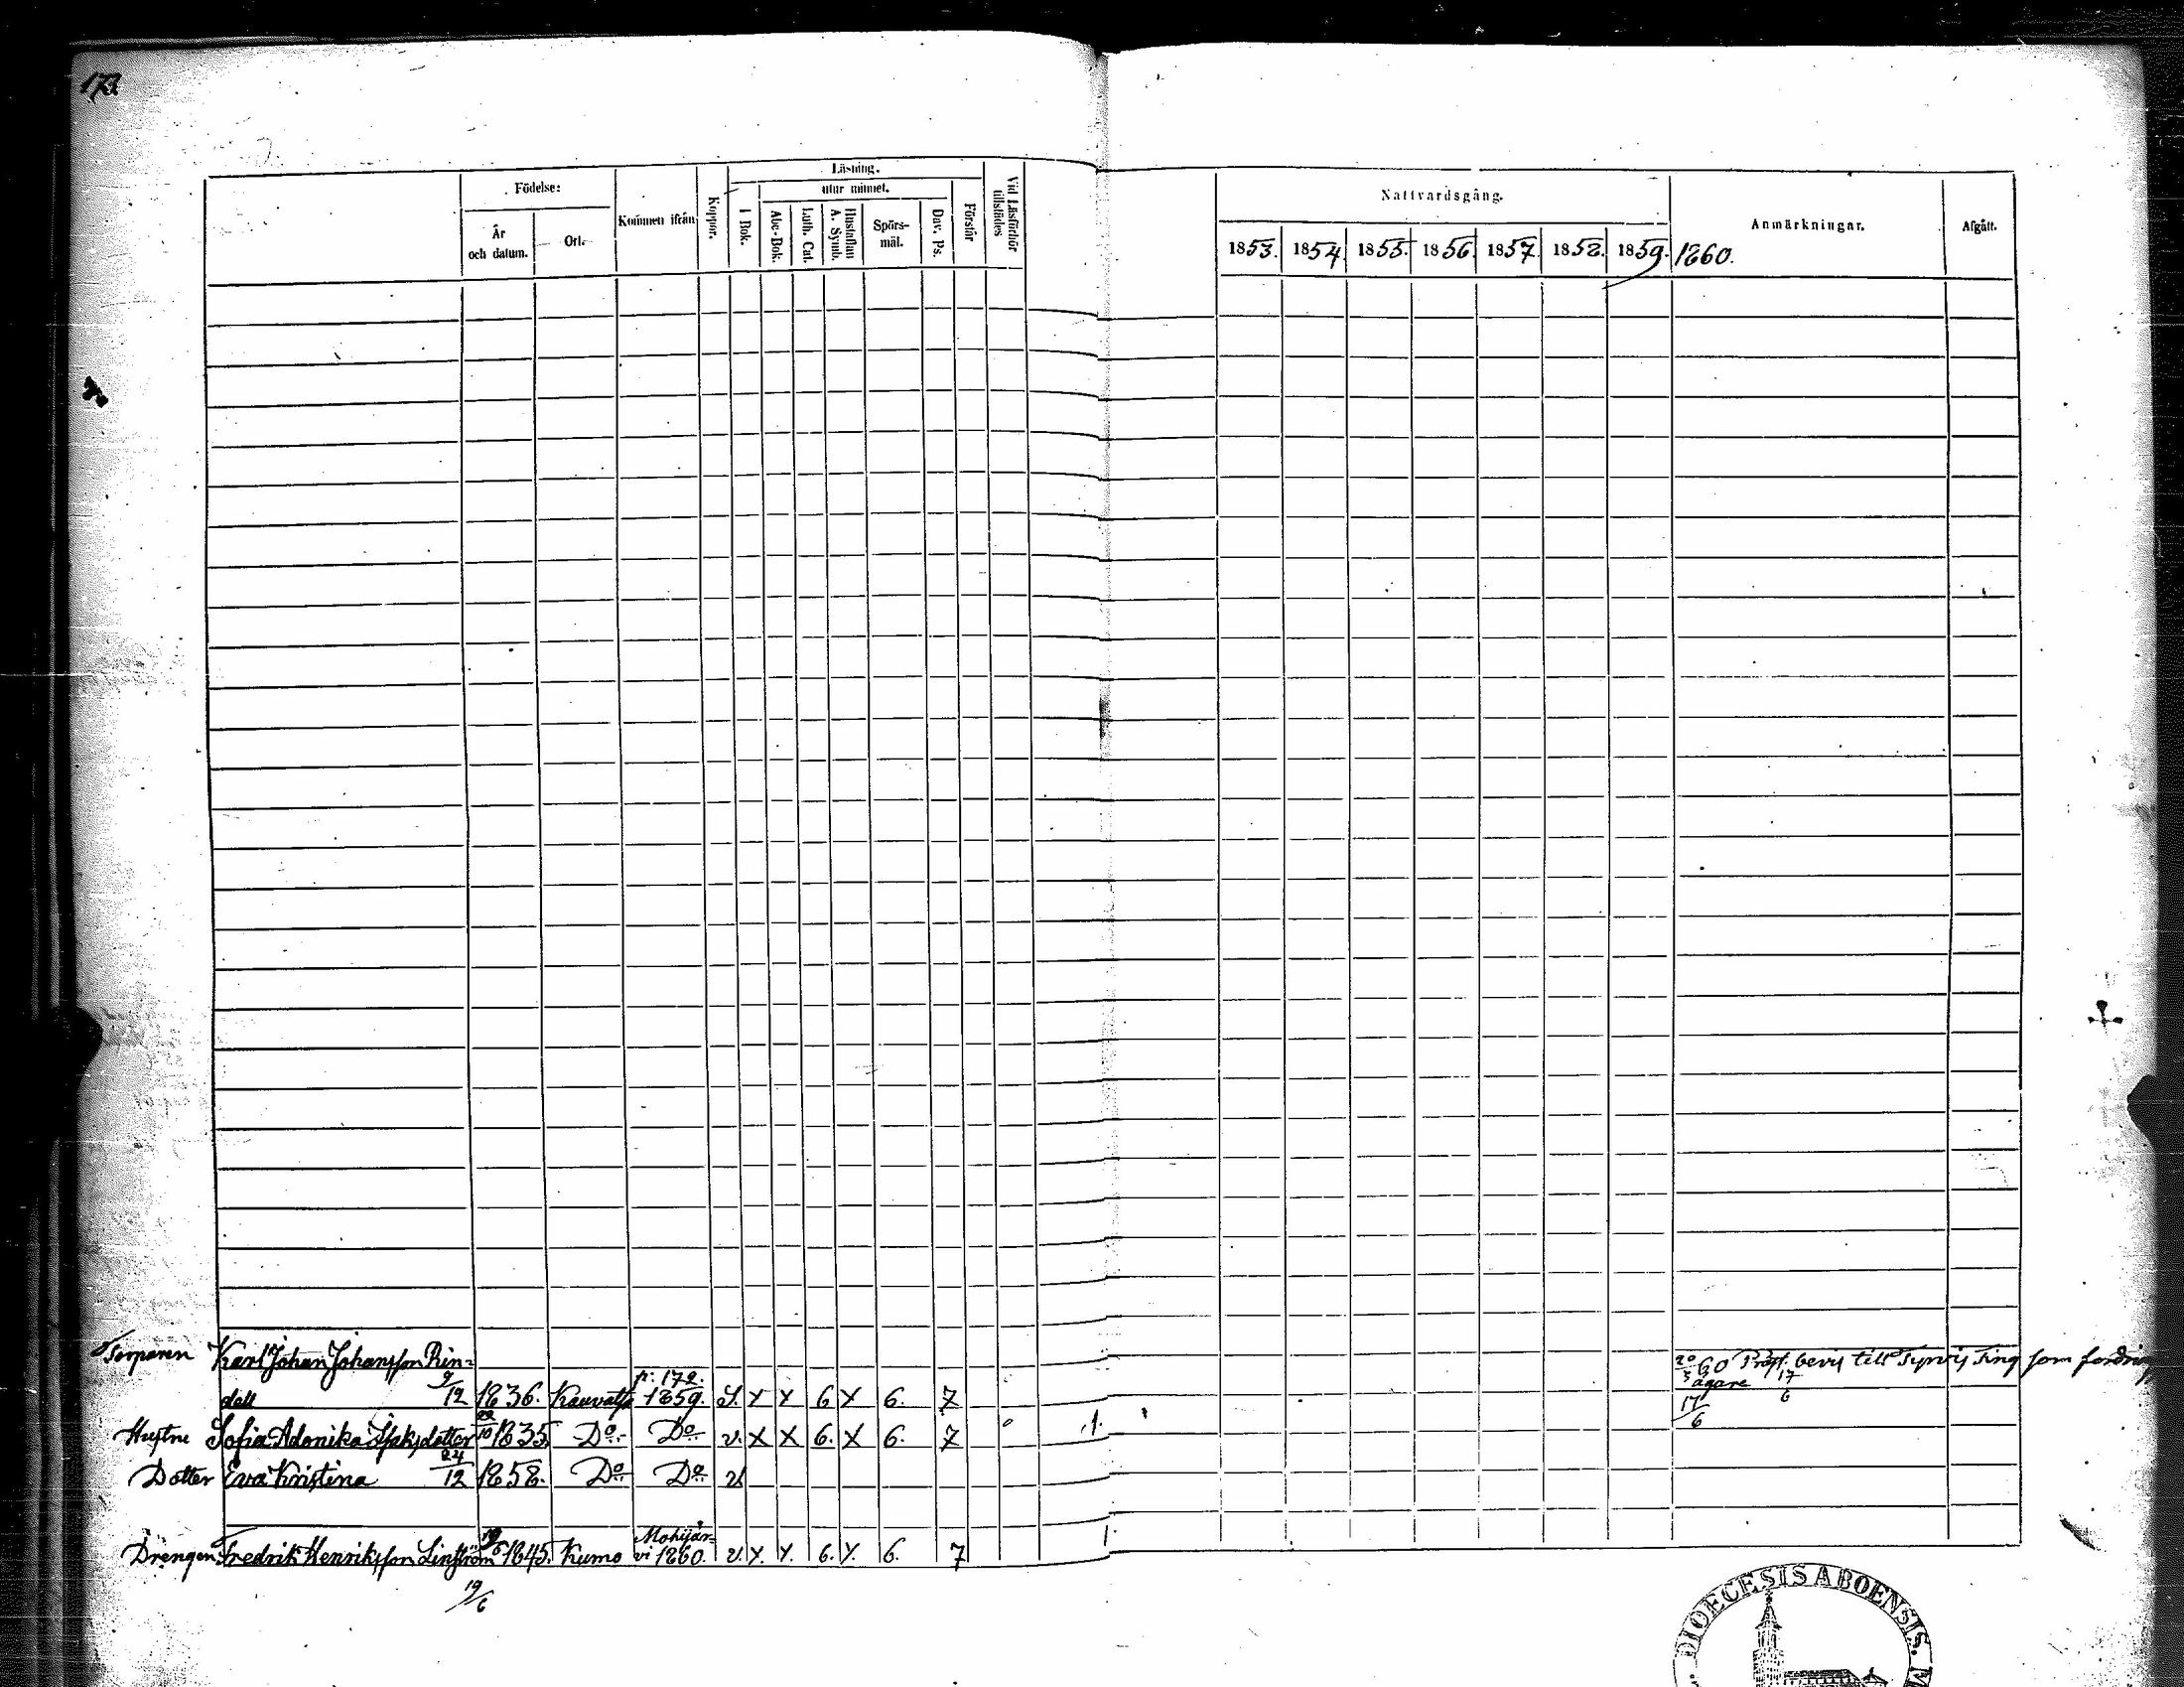 173
Födelse:
År och datum.
Ort.
Kommen ifrån
Koppor.
Läsning.
I Bok.
utur minnet.
Abc-Bok.
Luth. Cat.
Hustaflan A. Symb.
Spörs-mål.
Dav. Ps.
Förstår
Vid Läsförhör tillstädes
Nattvardsgång.
1853. 1854. 1855. 1856. 1857. 1858. 1859. 1860.
Anmärkningar.
Afgått.
Torparen Karl Johan Johansson Rin- 20/3 60 Präst. bevis till Tyrvis Ting som fordrings
dell 9/12 1836. Kauvatsa p: 172. 1859. S. X X 6 X 6. 7 ägare 17/6
17/6
Hustru Sofia Adonika Isaksdotter 22/10 1835. Do Do v. X X 6. X 6. 7 1.
Dotter Eva Kristina 24/12 1858. Do Do v
Drengen Fredrik Henriksson Linström 19/6 1845. Kumo Mohijär-
vi 1860. v. X. X. 6. X. 6. 7
19/6
DIOECESIS ABOENSIS. M